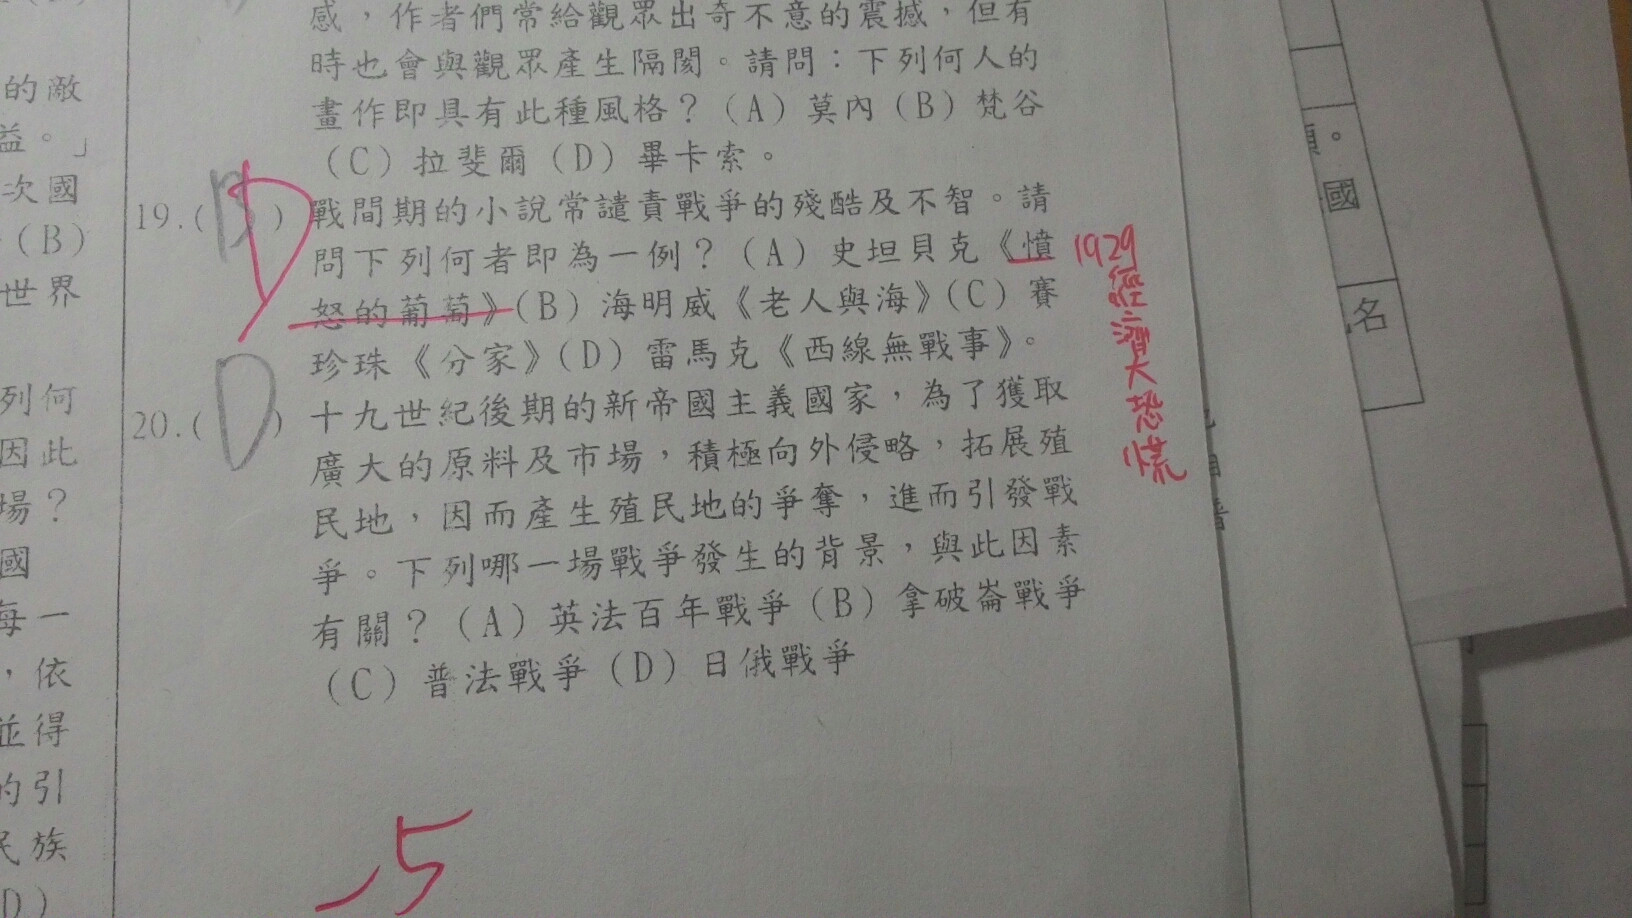 感，作者們常給觀眾出奇不意的震撼，但有
時也會與觀眾產生隔閡。請問：下列何人的
畫作即具有此種風格？（A）莫內（B）梵谷
（C）拉斐爾（D）畢卡索。
19.( D ) 戰間期的小說常譴責戰爭的殘酷及不智。請
問下列何者即為一例？（A）史坦貝克《憤
怒的葡萄》（B）海明威《老人與海》（C）賽
珍珠《分家》（D）雷馬克《西線無戰事》。
20.( D ) 十九世紀後期的新帝國主義國家，為了獲取
廣大的原料及市場，積極向外侵略，拓展殖
民地，因而產生殖民地的爭奪，進而引發戰
爭。下列哪一場戰爭發生的背景，與此因素
有關？（A）英法百年戰爭（B）拿破崙戰爭
（C）普法戰爭（D）日俄戰爭
1929
經濟大恐慌
-5
的敵
益。」
次國
（B）
世界
列何
因此
場？
國
每一
，依
並得
的引
民族
D）
國
名